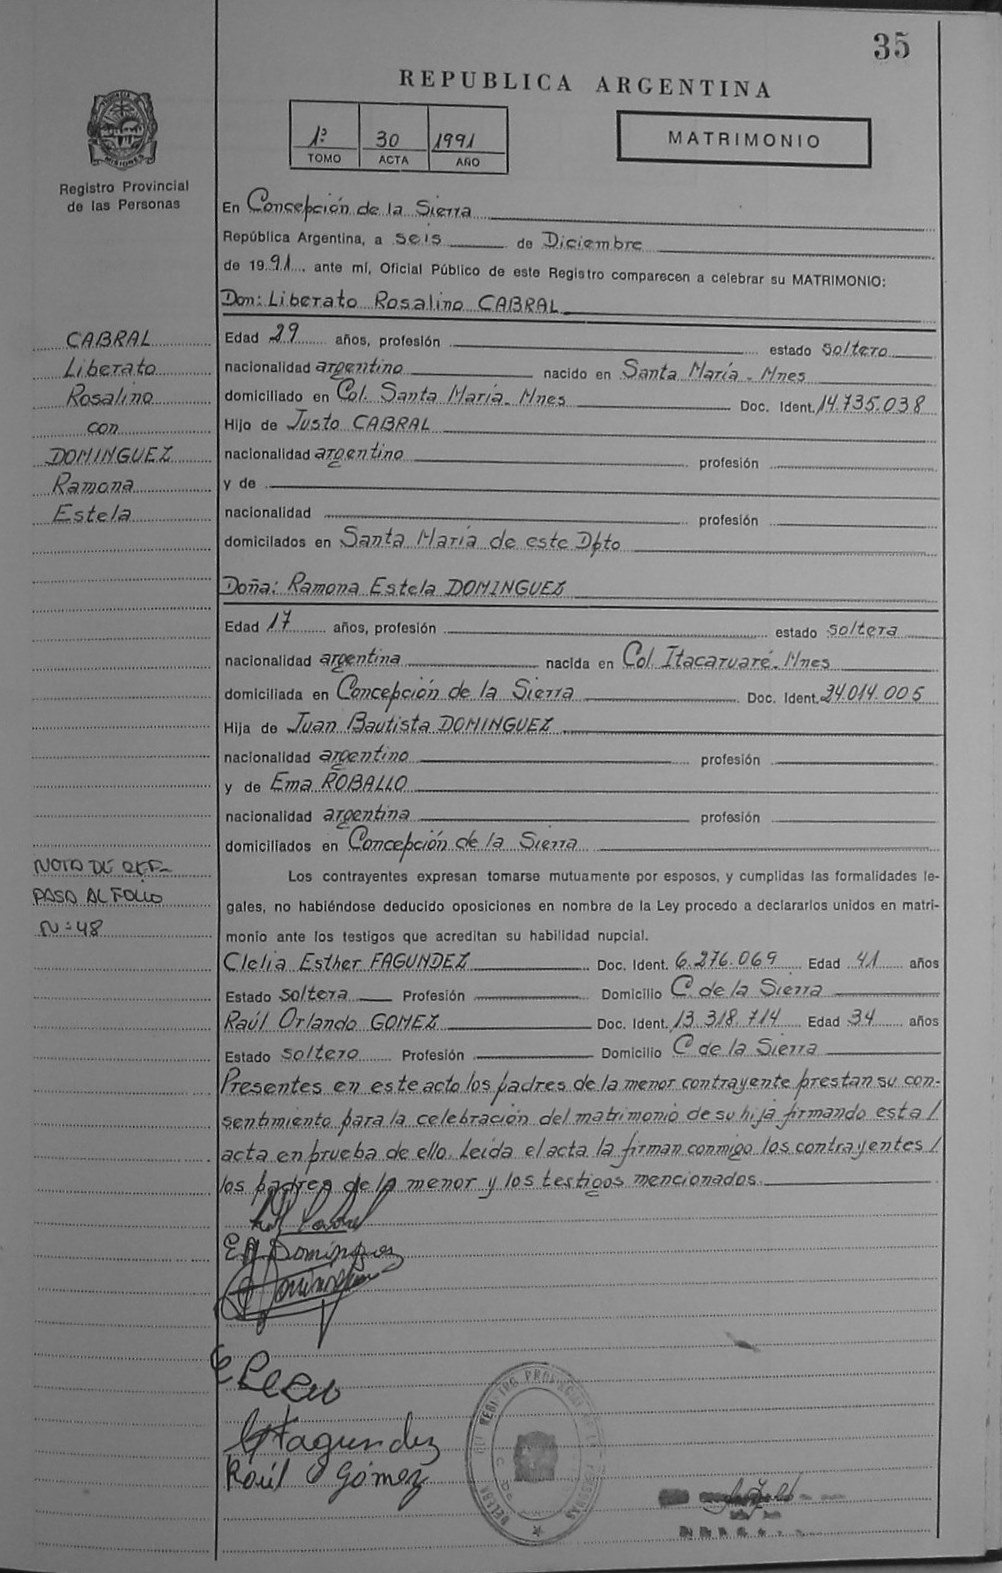 35
REPUBLICA ARGENTINA
1º 30 1991
TOMO ACTA AÑO
MATRIMONIO
Registro Provincial
de las Personas
En Concepción de la Sierra
República Argentina, a seis de Diciembre
de 1991, ante mí, Oficial Público de este Registro comparecen a celebrar su MATRIMONIO:
Don: Liberato Rosalino CABRAL
CABRAL
Liberato
Rosalino
con
DOMINGUEZ
Ramona
Estela
Edad 29 años, profesión estado soltero
nacionalidad argentino nacido en Santa María - Mnes
domiciliado en Col. Santa María - Mnes Doc. Ident. 14.735.038
Hijo de Justo CABRAL
nacionalidad argentino profesión
y de
nacionalidad profesión
domicilados en Santa María de este Dpto
Doña: Ramona Estela DOMINGUEZ
Edad 17 años, profesión estado soltera
nacionalidad argentina nacida en Col. Itacaruaré - Mnes
domiciliada en Concepción de la Sierra Doc. Ident. 24.014.005
Hija de Juan Bautista DOMINGUEZ
nacionalidad argentino profesión
y de Ema ROBALLO
nacionalidad argentina profesión
domiciliados en Concepción de la Sierra
NOTA DE REF-
PASA AL FOLIO
Nº 48
Los contrayentes expresan tomarse mutuamente por esposos, y cumplidas las formalidades le-
gales, no habiéndose deducido oposiciones en nombre de la Ley procedo a declararlos unidos en matri-
monio ante los testigos que acreditan su habilidad nupcial.
Clelia Esther FAGUNDEZ Doc. Ident. 6.276.069 Edad 41 años
Estado soltera Profesión Domicilio C. de la Sierra
Raúl Orlando GOMEZ Doc. Ident. 13.318.714 Edad 34 años
Estado soltero Profesión Domicilio C de la Sierra
Presentes en este acto los padres de la menor contrayente prestan su con-
sentimiento para la celebración del matrimonio de su hija firmando esta /
acta en prueba de ello. Leída el acta la firman conmigo los contrayentes /
los padres de la menor y los testigos mencionados.
Dominguez
Fagundez
Raúl O Gómez